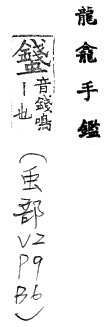 龍龕手鑑
音錢鳴
丨也
(虫部
V2
P9
B6)